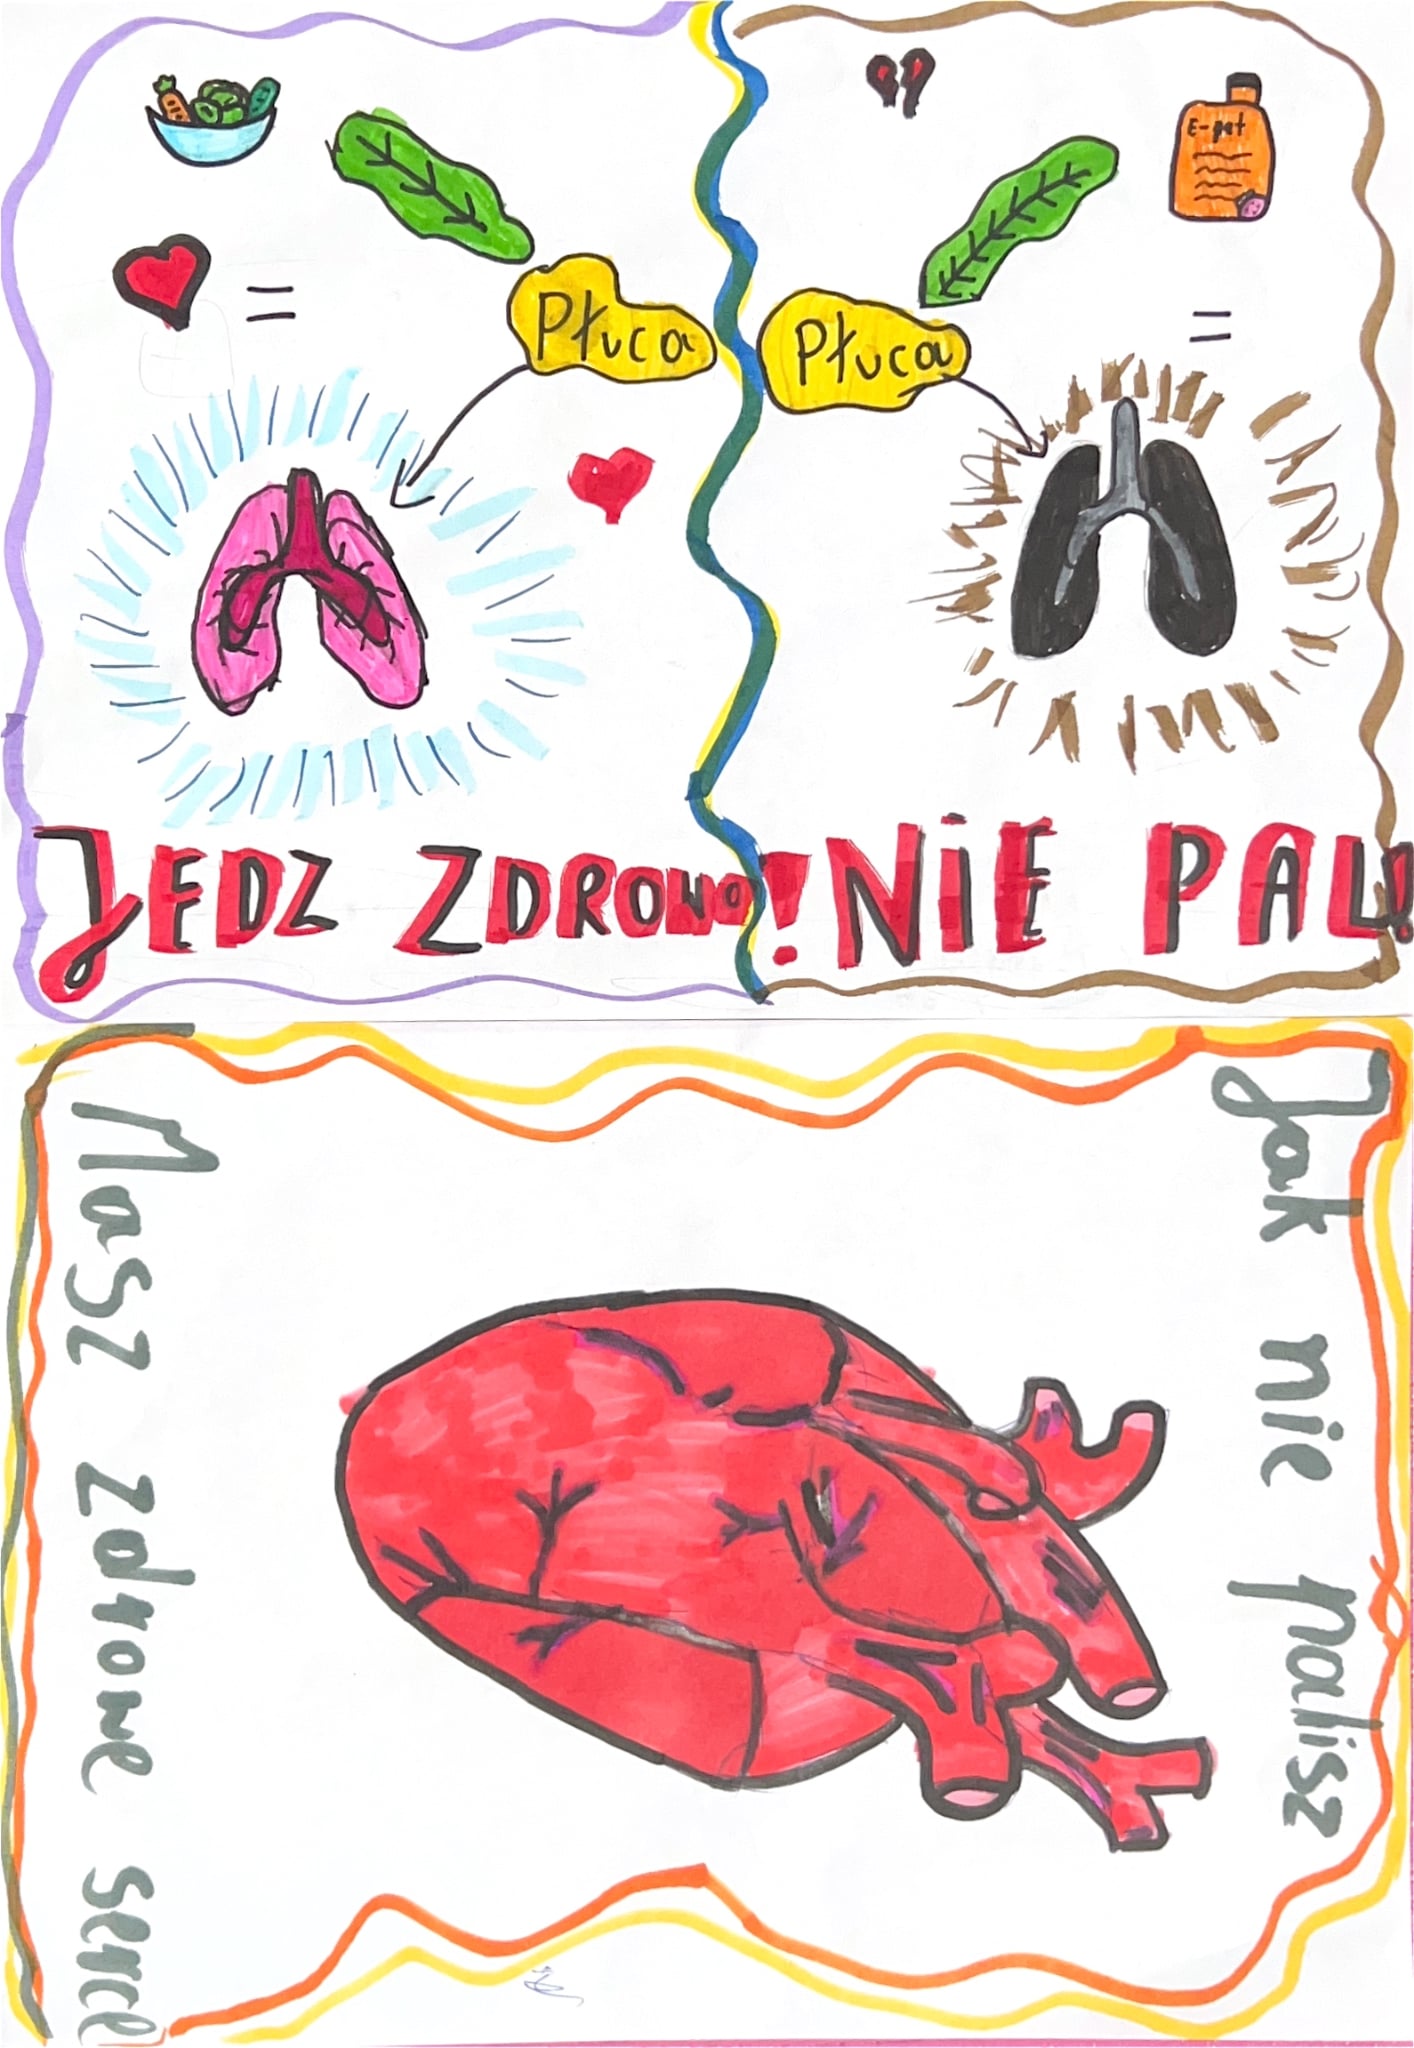 E-pet
Płuca
Płuca
JEDZ ZDROWO!
NIE PAL!
Jak nie palisz
Masz zdrowe serce